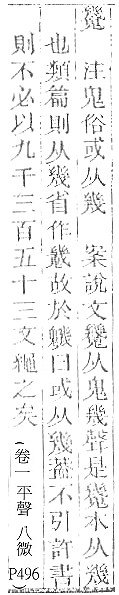 注鬼俗或从幾 案說文魕从鬼幾聲是魕本从幾
也類篇則从幾省作故於曰或从幾蓋不引許書
則不必以九千三百五十三文繩之矣 (卷一 平聲 八微 P496)